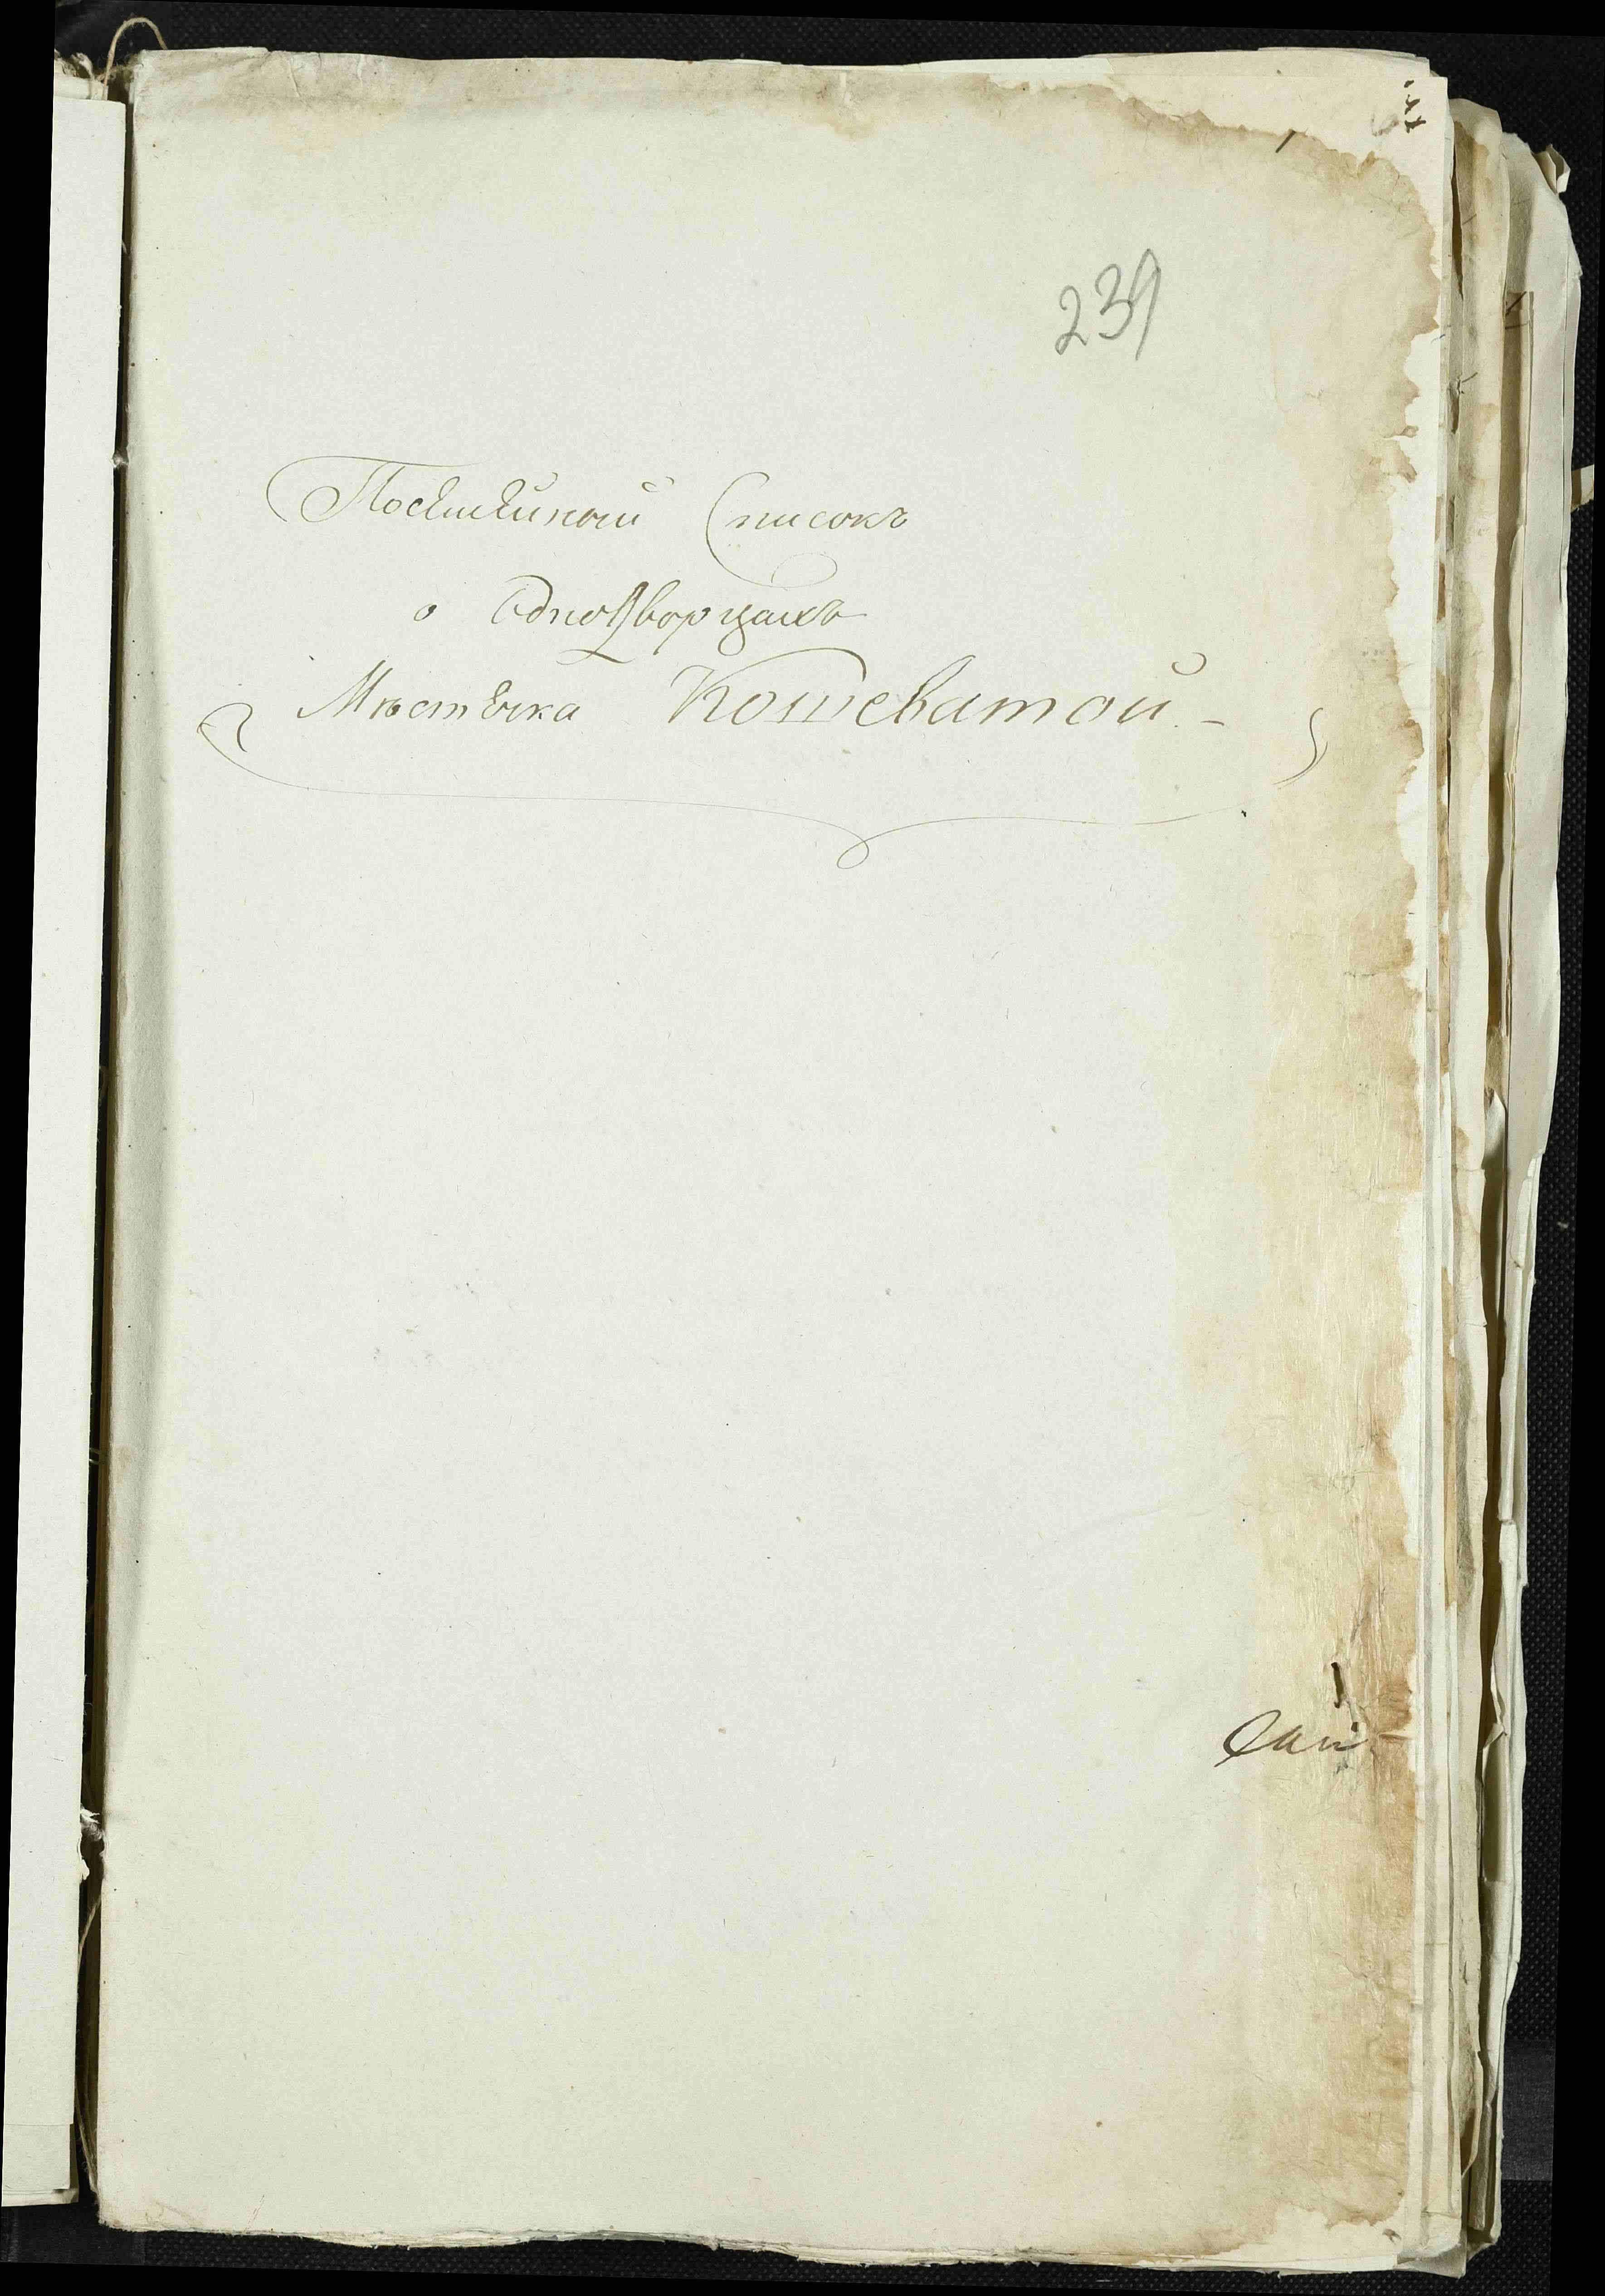 239
Посемейный Списокъ
о ОдноДворцахъ
Мѣстечка Кошеватой -